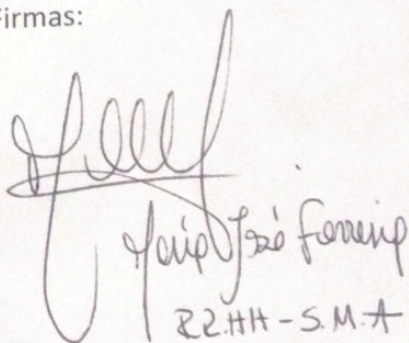 Firmas:
María José Ferreira
RR.HH - S.M.A